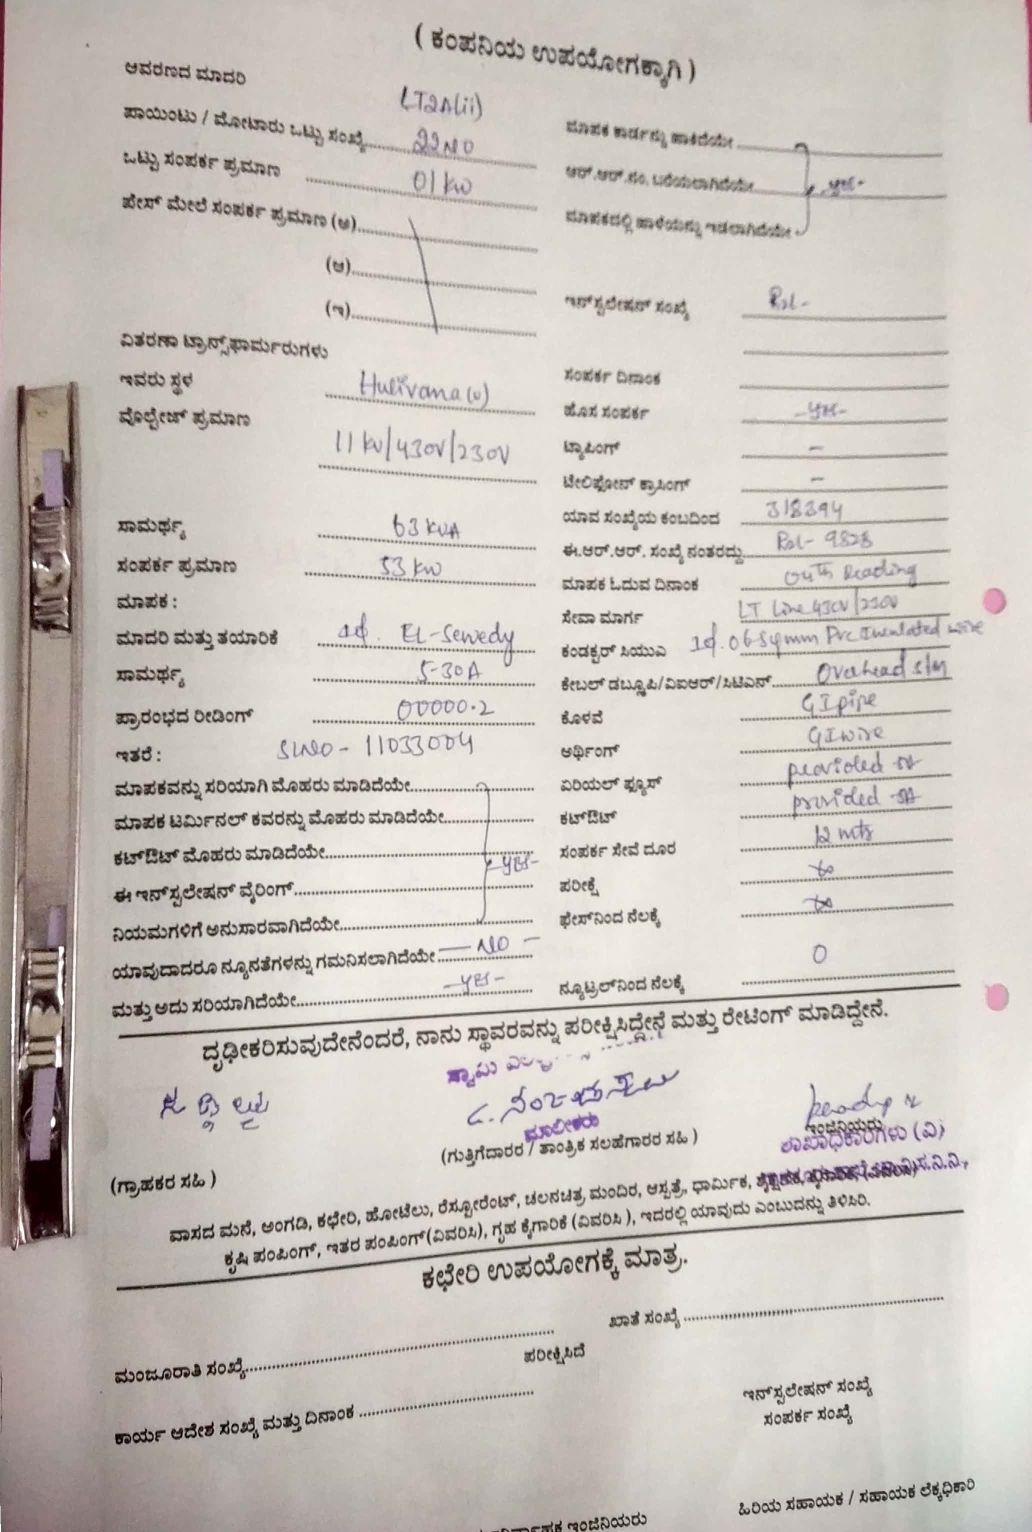 ( ಕಂಪನಿಯ ಉಪಯೋಗಕ್ಕಾಗಿ )
ಆವರಣದ ಮಾದರಿ LT2A(ii)
ಪಾಯಿಂಟು / ಮೋಟಾರು ಒಟ್ಟು ಸಂಖ್ಯೆ 22 NO
ಮಾಪಕ ಕಾರ್ಡನ್ನು ಹಾಕಿದೆಯೇ
ಒಟ್ಟು ಸಂಪರ್ಕ ಪ್ರಮಾಣ 01 KW
ಆರ್.ಆರ್.ನಂ. ಬರೆಯಲಾಗಿದೆಯೇ yes-
ಫೇಸ್ ಮೇಲೆ ಸಂಪರ್ಕ ಪ್ರಮಾಣ (ಅ)
ಮಾಪಕದಲ್ಲಿ ಹಾಳೆಯನ್ನು ಇಡಲಾಗಿದೆಯೇ
(ಆ)
(ಇ)
ಇನ್‌ಸ್ಟಲೇಷನ್ ಸಂಖ್ಯೆ
ವಿತರಣಾ ಟ್ರಾನ್ಸ್‌ಫಾರ್ಮರುಗಳು
ಇವರು ಸ್ಥಳ Hulivana (v)
ಸಂಪರ್ಕ ದಿನಾಂಕ
ವೊಲ್ಟೇಜ್ ಪ್ರಮಾಣ 11 KV/430V/230V
ಹೊಸ ಸಂಪರ್ಕ -yes-
ಟ್ಯಾಪಿಂಗ್ -
ಟೇಲಿಫೋನ್ ಕ್ರಾಸಿಂಗ್ -
ಸಾಮರ್ಥ್ಯ 63 KVA
ಯಾವ ಸಂಖ್ಯೆಯ ಕಂಬದಿಂದ 318394
ಸಂಪರ್ಕ ಪ್ರಮಾಣ 53 KW
ಈ.ಆರ್.ಆರ್. ಸಂಖ್ಯೆ ನಂತರದ್ದು
ಮಾಪಕ :
ಮಾಪಕ ಓದುವ ದಿನಾಂಕ 04th Reading
ಮಾದರಿ ಮತ್ತು ತಯಾರಿಕೆ 1ϕ. EL-Sewedy
ಸೇವಾ ಮಾರ್ಗ LT Line 430V/230V
ಸಾಮರ್ಥ್ಯ 5-30A
ಕಂಡಕ್ಟರ್ ಸಿಯುಎ 1ϕ. 06 Sqmm Pvc Insulated wire
ಪ್ರಾರಂಭದ ರೀಡಿಂಗ್ 00000.2
ಕೇಬಲ್ ಡಬ್ಲ್ಯೂಪಿ/ವಿಐಆರ್/ಸಿಟಿಎಸ್ Overhead
ಇತರೆ : SLNO - 11033004
ಕೊಳವೆ GI pipe
ಅರ್ಥಿಂಗ್ GI wire
ಮಾಪಕವನ್ನು ಸರಿಯಾಗಿ ಮೊಹರು ಮಾಡಿದೆಯೇ
ಏರಿಯಲ್ ಫ್ಯೂಸ್ provided
ಮಾಪಕ ಟರ್ಮಿನಲ್ ಕವರನ್ನು ಮೊಹರು ಮಾಡಿದೆಯೇ
ಕಟ್‌ಔಟ್ provided
ಕಟ್‌ಔಟ್ ಮೊಹರು ಮಾಡಿದೆಯೇ -yes-
ಸಂಪರ್ಕ ಸೇವೆ ದೂರ 12 mts
ಈ ಇನ್‌ಸ್ಪಲೇಷನ್ ವೈರಿಂಗ್
ಪರೀಕ್ಷೆ ∞
ನಿಯಮಗಳಿಗೆ ಅನುಸಾರವಾಗಿದೆಯೇ
ಫೇಸ್‌ನಿಂದ ನೆಲಕ್ಕೆ ∞
ಯಾವುದಾದರೂ ನ್ಯೂನತೆಗಳನ್ನು ಗಮನಿಸಲಾಗಿದೆಯೇ - NO -
ಮತ್ತು ಅದು ಸರಿಯಾಗಿದೆಯೇ -yes-
ನ್ಯೂಟ್ರಲ್‌ನಿಂದ ನೆಲಕ್ಕೆ 0
ದೃಢೀಕರಿಸುವುದೇನೆಂದರೆ, ನಾನು ಸ್ಥಾವರವನ್ನು ಪರೀಕ್ಷಿಸಿದ್ದೇನೆ ಮತ್ತು ರೇಟಿಂಗ್ ಮಾಡಿದ್ದೇನೆ.
ಸ್ವಾಮಿ
ಮಾಲೀಕರು
ಇಂಜಿನಿಯರು
(ಗುತ್ತಿಗೆದಾರರ / ತಾಂತ್ರಿಕ ಸಲಹೆಗಾರರ ಸಹಿ )
ಶಾಖಾಧಿಕಾರಿಗಳು (ವಿ)
(ಗ್ರಾಹಕರ ಸಹಿ )
ವಾಸದ ಮನೆ, ಅಂಗಡಿ, ಕಛೇರಿ, ಹೋಟೆಲು, ರೆಸ್ಟೋರೆಂಟ್, ಚಲನಚಿತ್ರ ಮಂದಿರ, ಆಸ್ಪತ್ರೆ, ಧಾರ್ಮಿಕ,
ಕೃಷಿ ಪಂಪಿಂಗ್, ಇತರ ಪಂಪಿಂಗ್(ವಿವರಿಸಿ), ಗೃಹ ಕೈಗಾರಿಕೆ (ವಿವರಿಸಿ ), ಇದರಲ್ಲಿ ಯಾವುದು ಎಂಬುದನ್ನು ತಿಳಿಸಿರಿ.
ಕಛೇರಿ ಉಪಯೋಗಕ್ಕೆ ಮಾತ್ರ.
ಖಾತೆ ಸಂಖ್ಯೆ
ಮಂಜೂರಾತಿ ಸಂಖ್ಯೆ
ಪರೀಕ್ಷಿಸಿದೆ
ಇನ್‌ಸ್ಪಲೇಷನ್ ಸಂಖ್ಯೆ
ಕಾರ್ಯ ಆದೇಶ ಸಂಖ್ಯೆ ಮತ್ತು ದಿನಾಂಕ
ಸಂಪರ್ಕ ಸಂಖ್ಯೆ
ಹಿರಿಯ ಸಹಾಯಕ / ಸಹಾಯಕ ಲೆಕ್ಕಧಿಕಾರಿ
ಇಂಜಿನಿಯರು